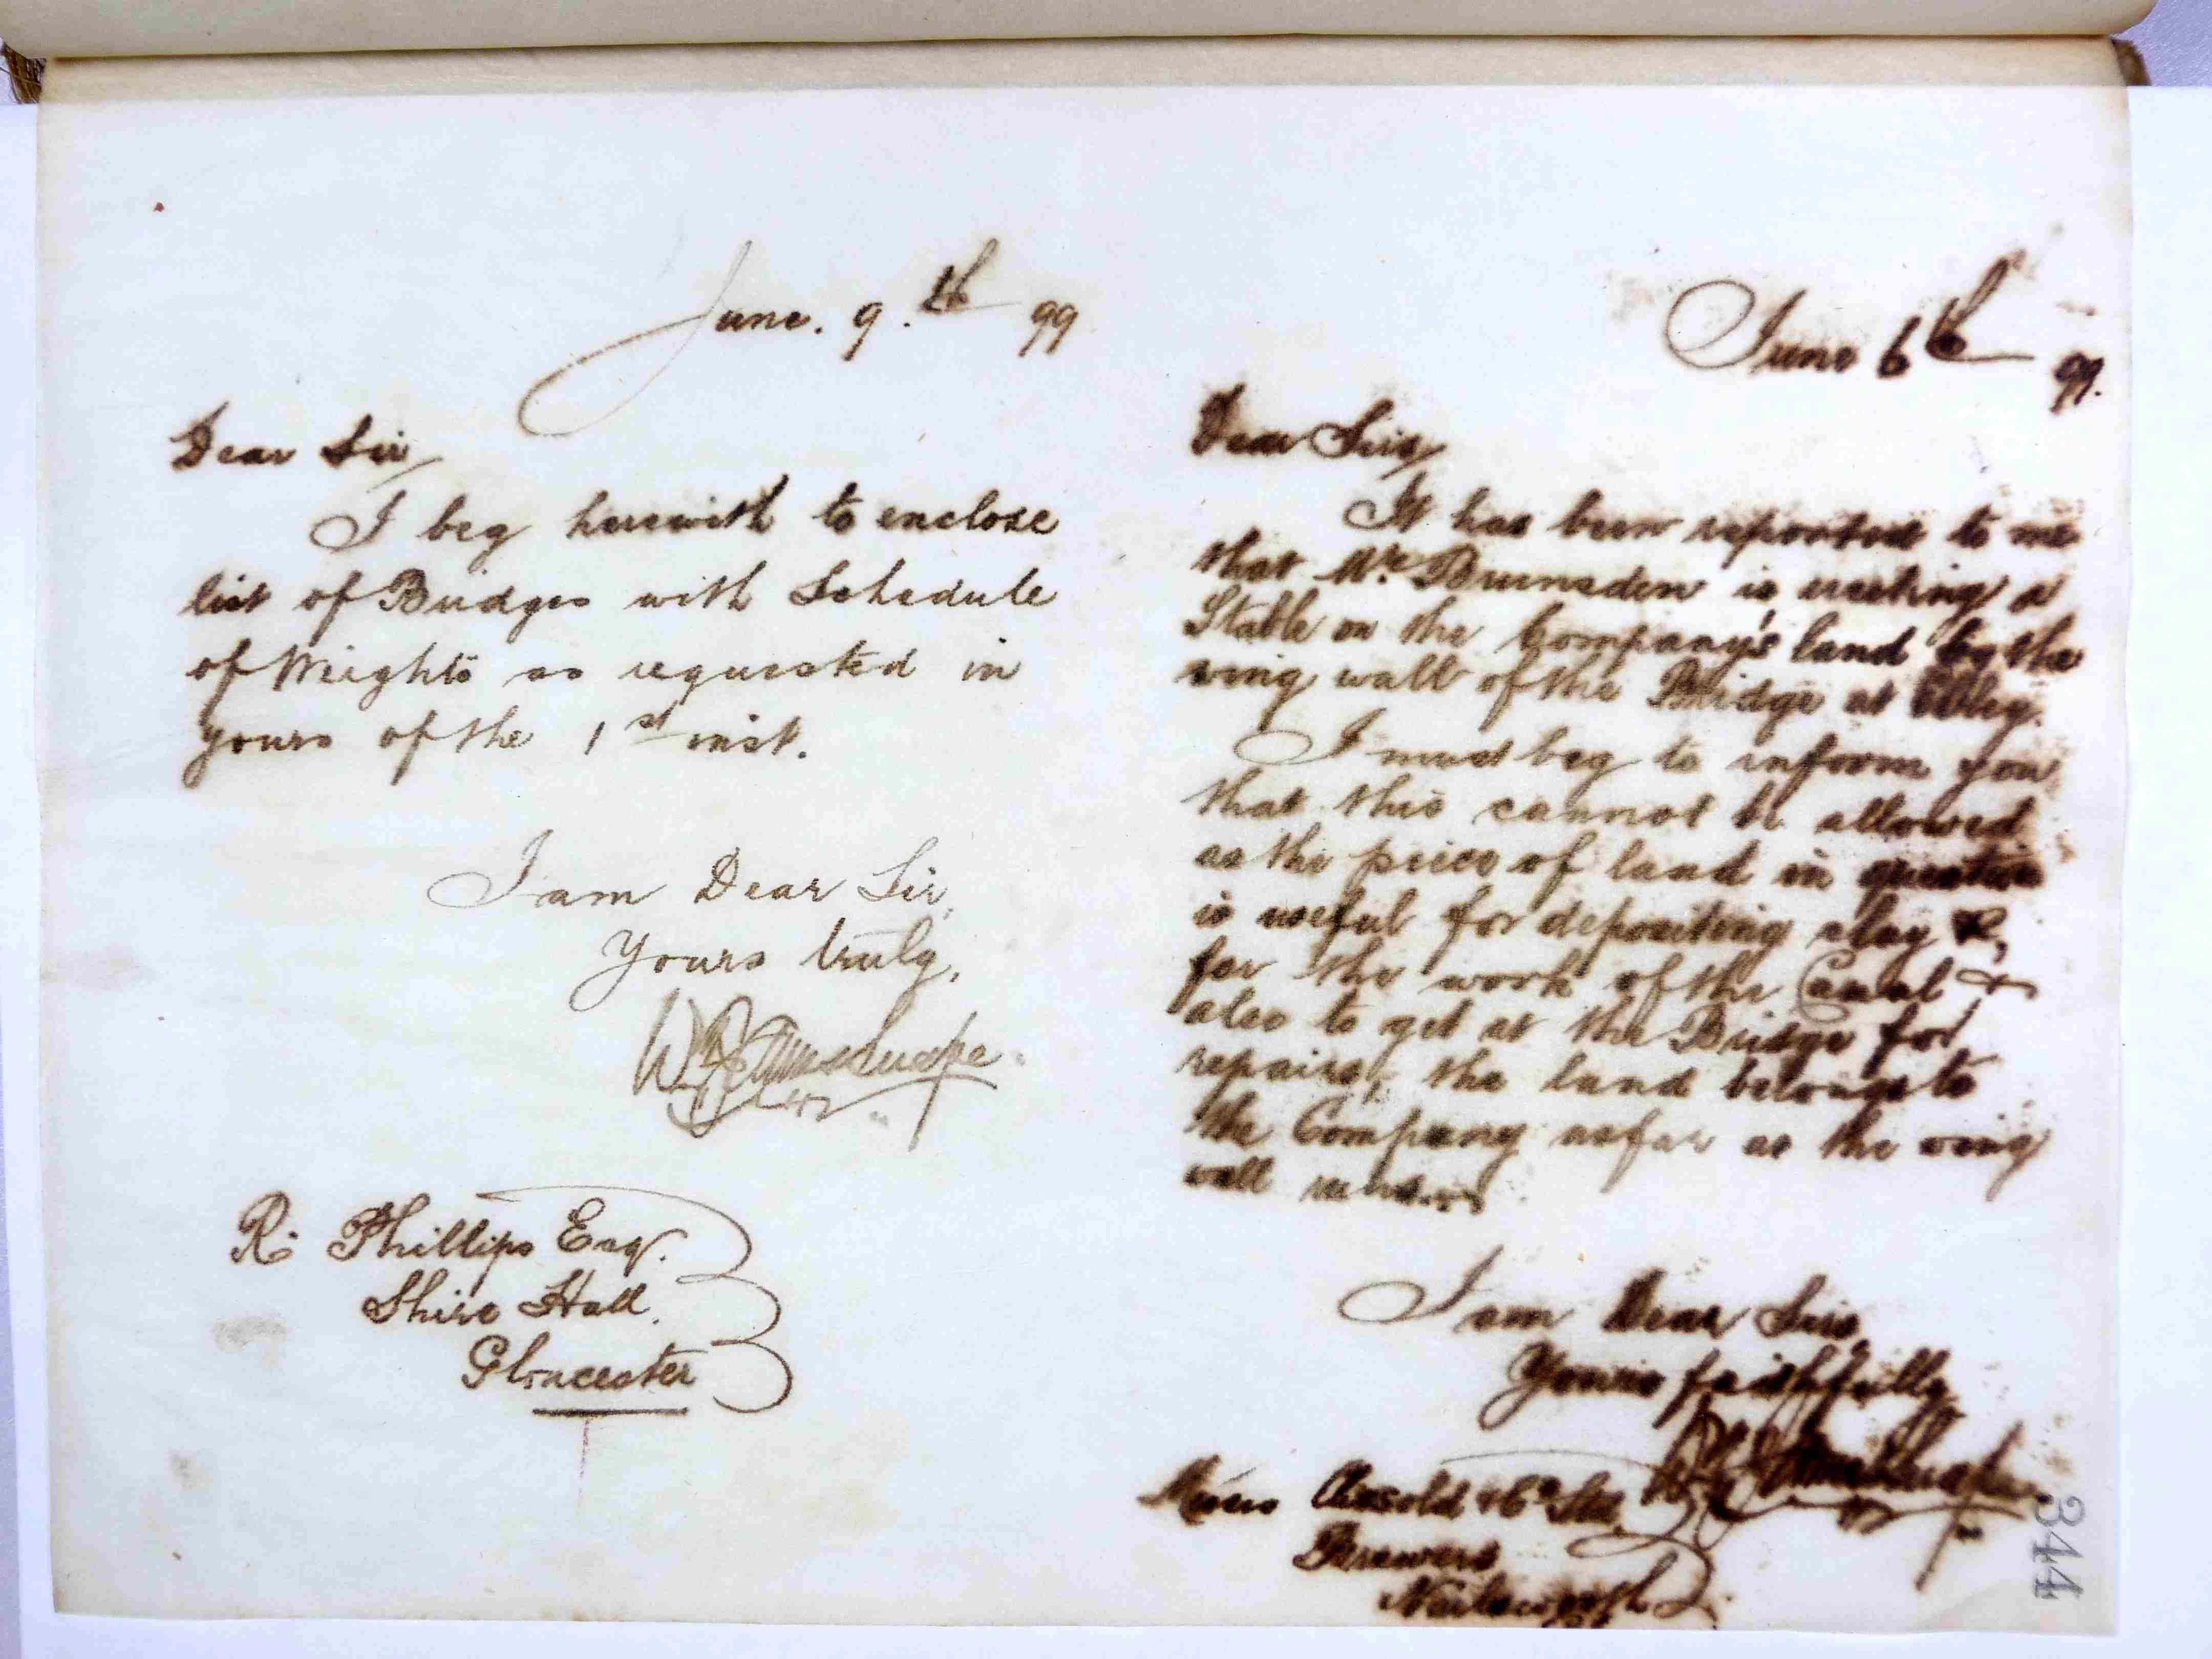 June. 9.th 99
Dear Sir,
I beg herewith to enclose
list of Bridges with Schedule
of Weights as requested in
yours of the 1st inst.
I am Dear Sir,
Yours truly,
R. Phillips Esq.
Shire Hall.
Gloucester
June 6th 99.
Dear Sirs,
It has been reported to me
that Mr. Brunsden is erecting a
Stable on the Company's land by the
wing wall of the Bridge at Ebley.
I must beg to inform you
that this cannot be allowed
as the piece of land in question
is useful for depositing clay &c,
for the work of the Canal &
also to get at the Bridge for
repairs, the land belongs to
the Company as far as the wing
wall
I am Dear Sirs,
Yours faithfully
Messrs Clissold & Co Ltd.
Brewers
Nailsworth
344